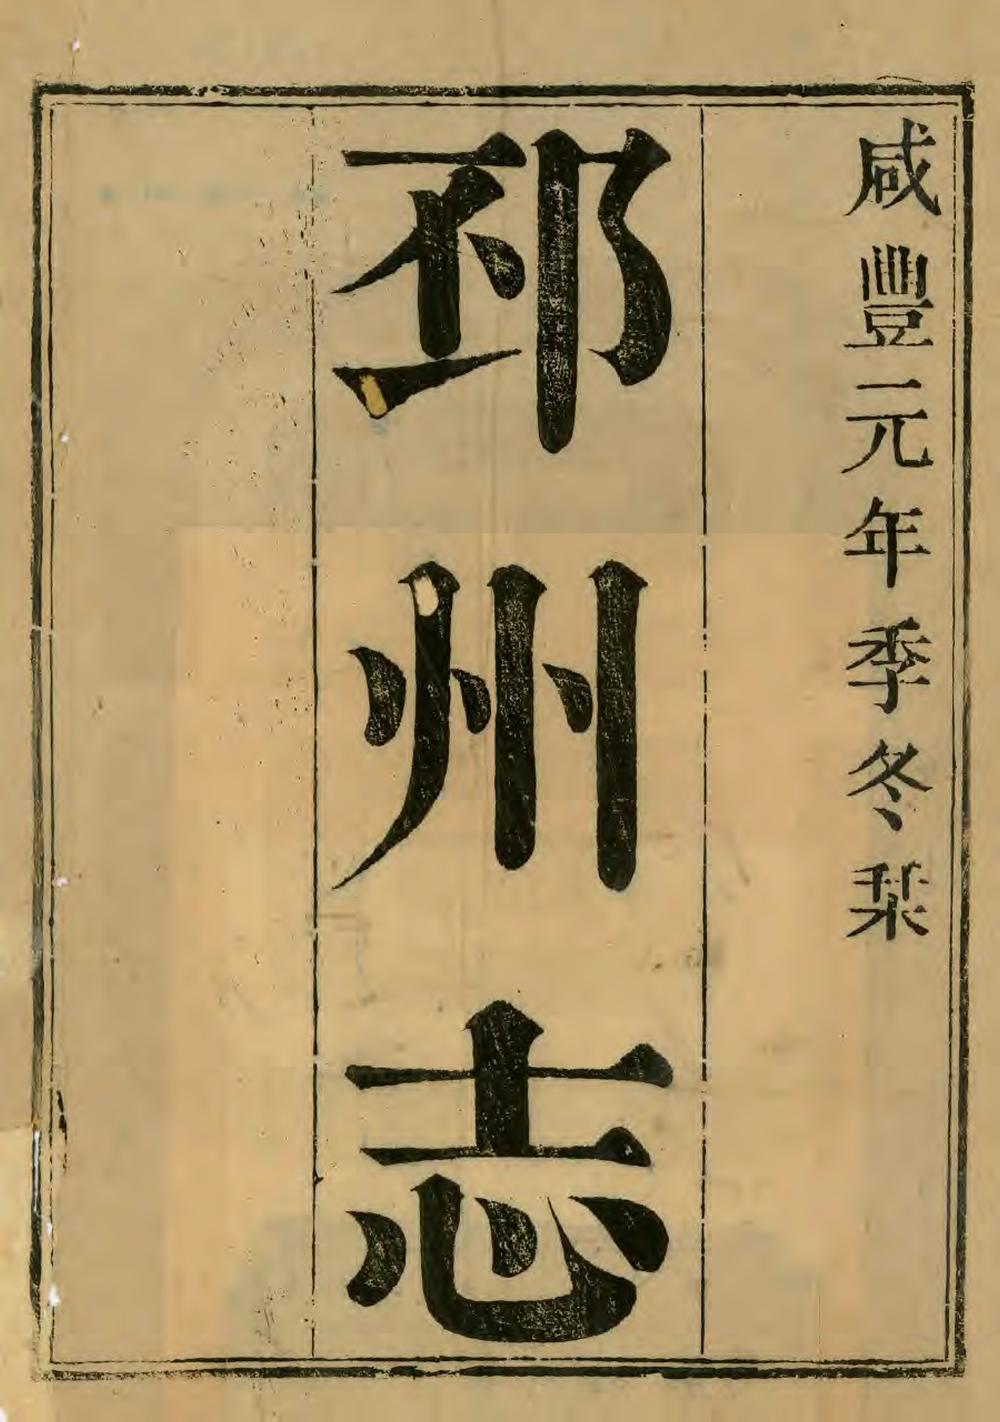 咸豐元年季冬栞
邳州志